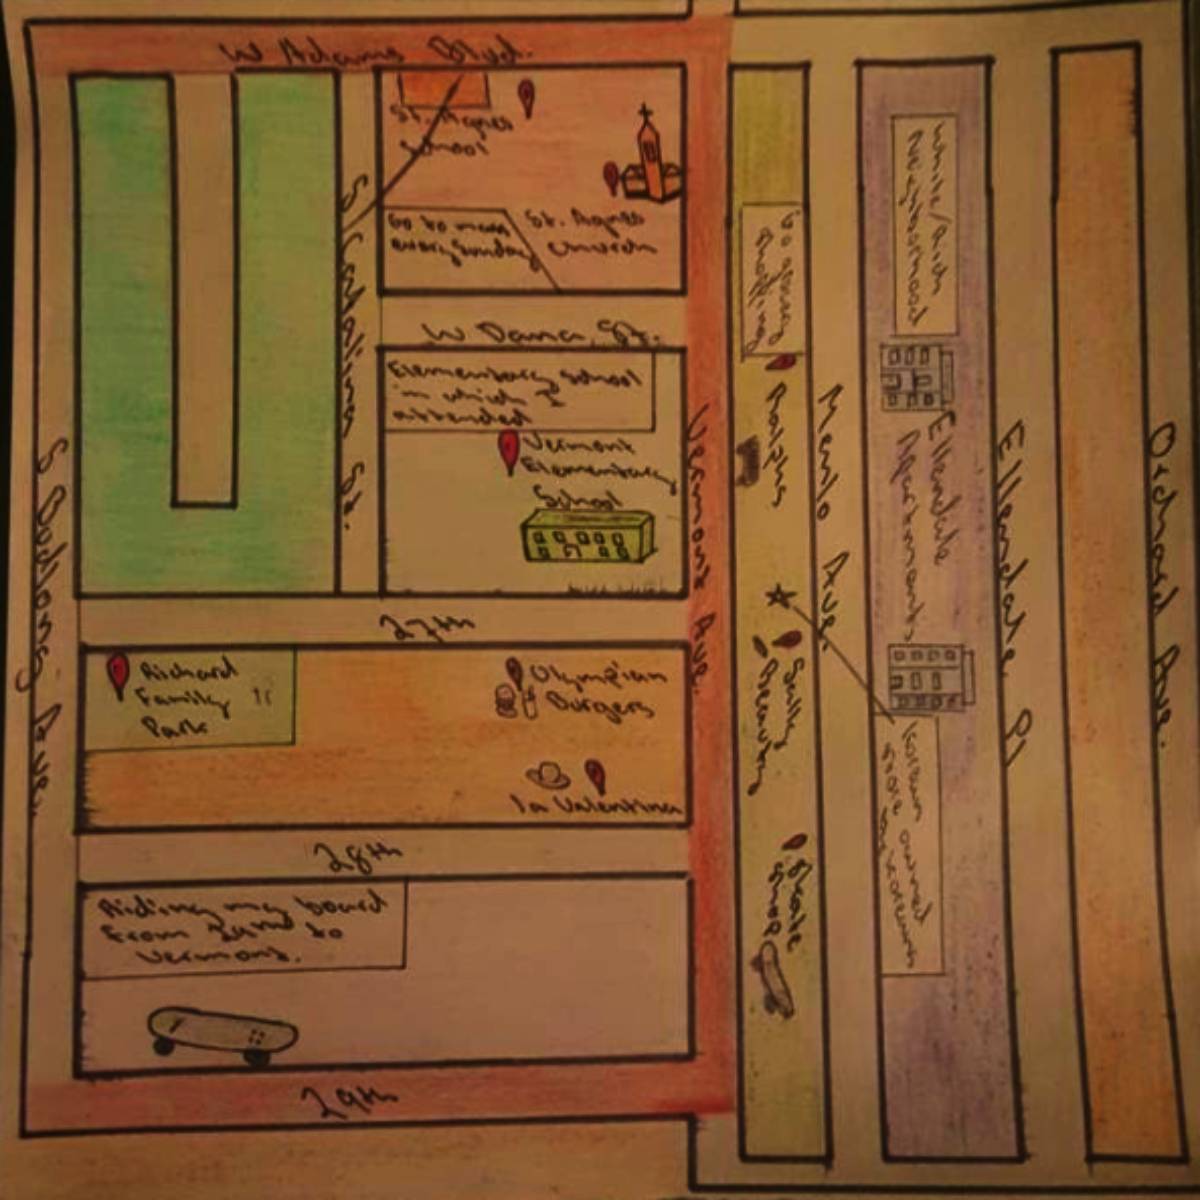 W Adams Blvd.
St. Agnes
School
Go to mass
every Sunday
St. Agnes
Church
S Catalina St.
W Dana St.
Elementary School
in which I
attended
Vermont
Elementary
School
Vermont Ave.
27th
Richard
Family
Park
Olympian
Burgers
la Valentina
28th
Riding my board
from to
Vermont.
29th
S Budlong Ave.
Go grocery
shopping
Ralphs
Sally
Beauty
Skate
Shop
Menlo Ave.
White/Rich
Neighborhood
Ellendale
Apartments
Korean owned
Ellendale Pl
Orchard Ave.